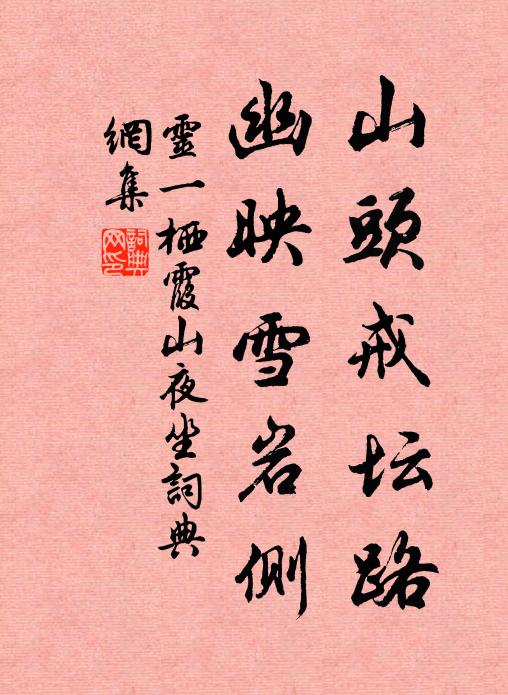 山頭戒坛路
幽映雪岩側
靈一栖霞山夜坐詞典
網集
詞典網印